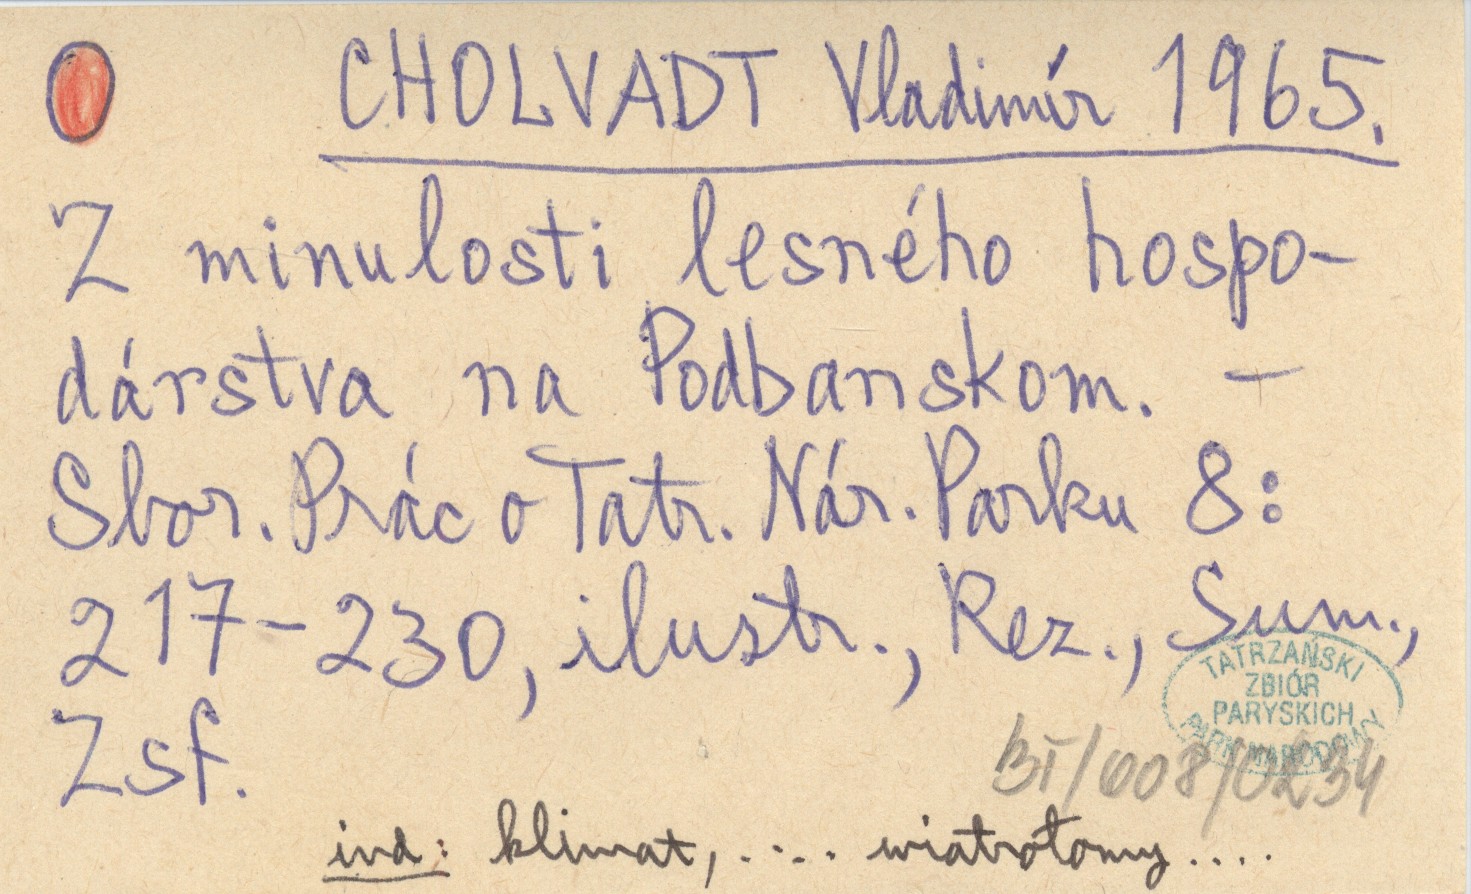 CHOLVADT Vladimír 1965.
Z minulosti lesného hospo-
dárstva na Podbanskom. —
Sbor. Prác o Tatr. Nár. Parku 8:
217-230, ilustr., Rez., Sum.,
Zsf.
TATRZAŃSKI
ZBIÓR
PARYSKICH
PARK NARODOWY
BI/008/0234
ind: klimat, .... wiatrołomy ....